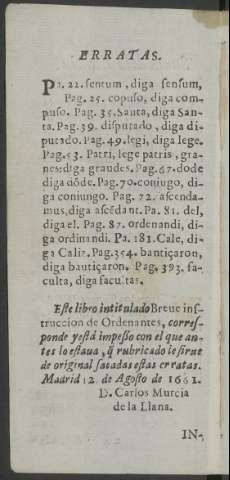 ERRATAS.
PA. 22. sentum, diga sensum,
Pag. 25. copuso, diga com-
puso. Pag. 35. Sauta, diga San-
ta. Pag. 39. disputado, diga di-
putado. Pag. 49. legi, diga lege.
Pag. 53. Patri, lege patris, gra-
nes: diga graudes. Pag. 67. dode
diga dõde. Pag. 70. coniugo, di-
ga coniungo. Pag. 72. ascenda-
mus, diga ascẽdant. Pa. 81. del,
diga el. Pag. 87. ordenandi, di-
ga ordinandi. Pa. 181. Cale, di-
ga Caliz. Pag. 354. bantiçaron,
diga bautiçaron. Pag. 393. fa-
culta, diga facultas.
Este libro intitulado Breue ins-
truccion de Ordenantes, corres-
ponde y està impesso con el que an-
tes lo estaua, q̃ rubricado le sirue
de original sacadas estas erratas.
Madrid 12 de Agosto de 1661.
D. Carlos Murcia
de la Llana.
IN-